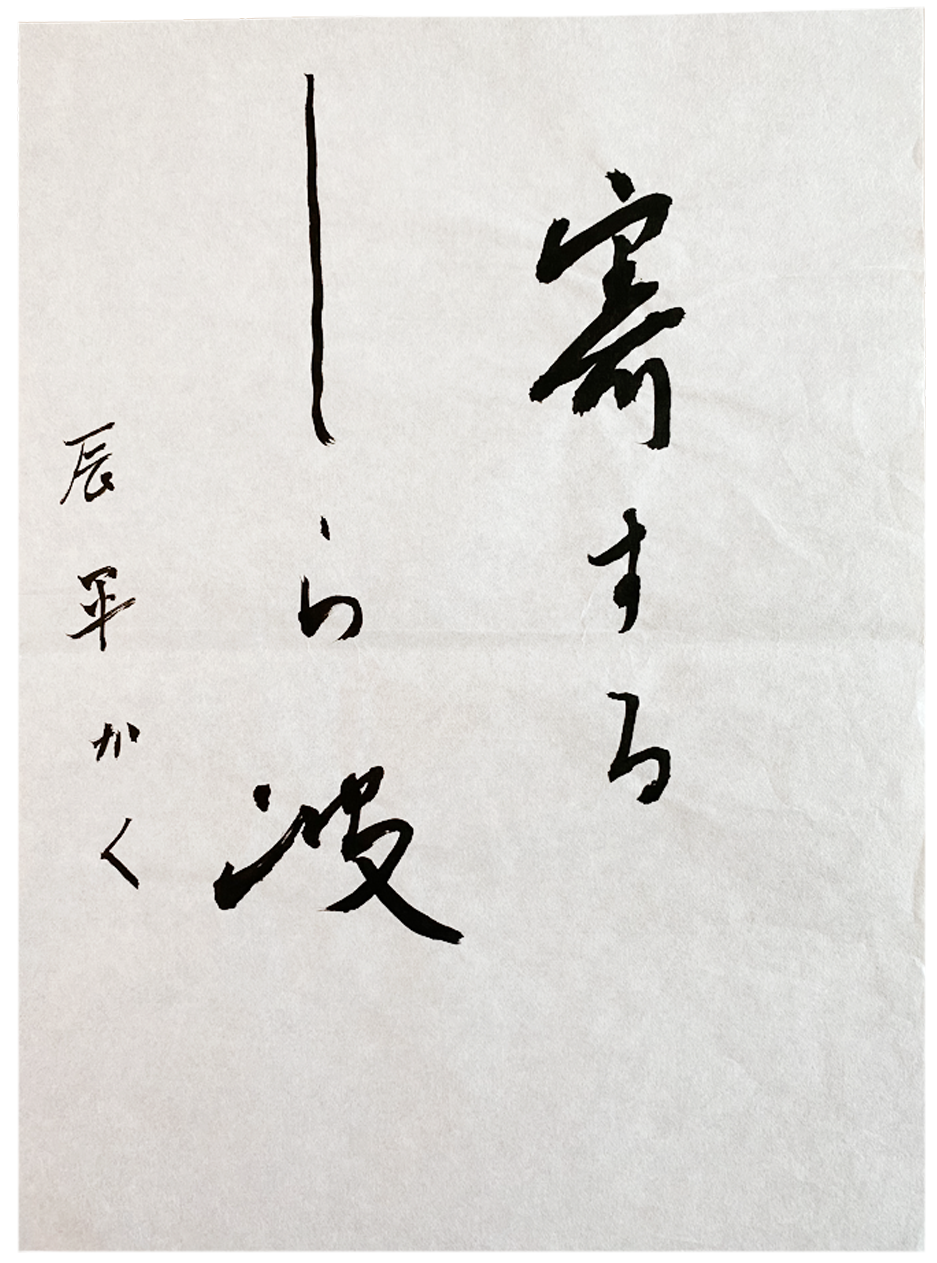 寄する
しら波
辰平かく